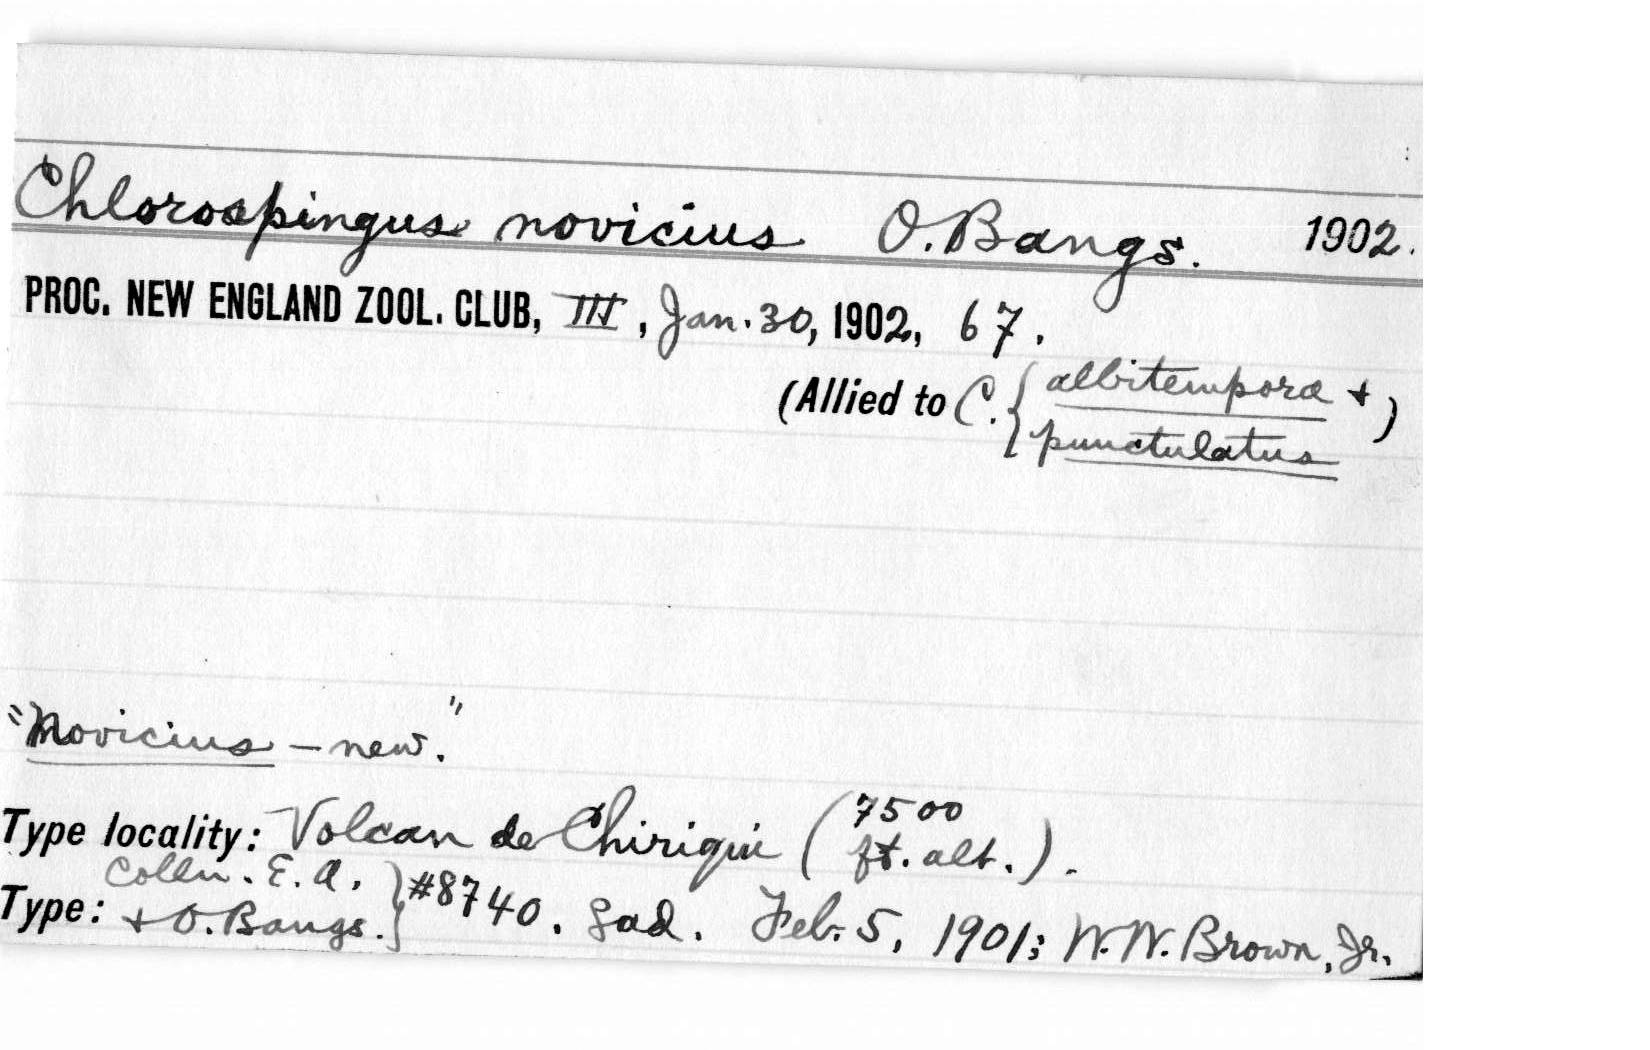 Chlorospingus novicius O. Bangs. 1902.
PROC. NEW ENGLAND ZOOL. CLUB, III, Jan. 30, 1902, 67.
(Allied to C. { albitempora +
punctulatus )
"Novicius – new."
Type locality: Volcan de Chiriqui ( 7500
ft. alt. ).
Type: Colln. E. A.
+ O. Bangs. } #8740. ♀ad. Feb. 5, 1901; W. W. Brown, Jr.